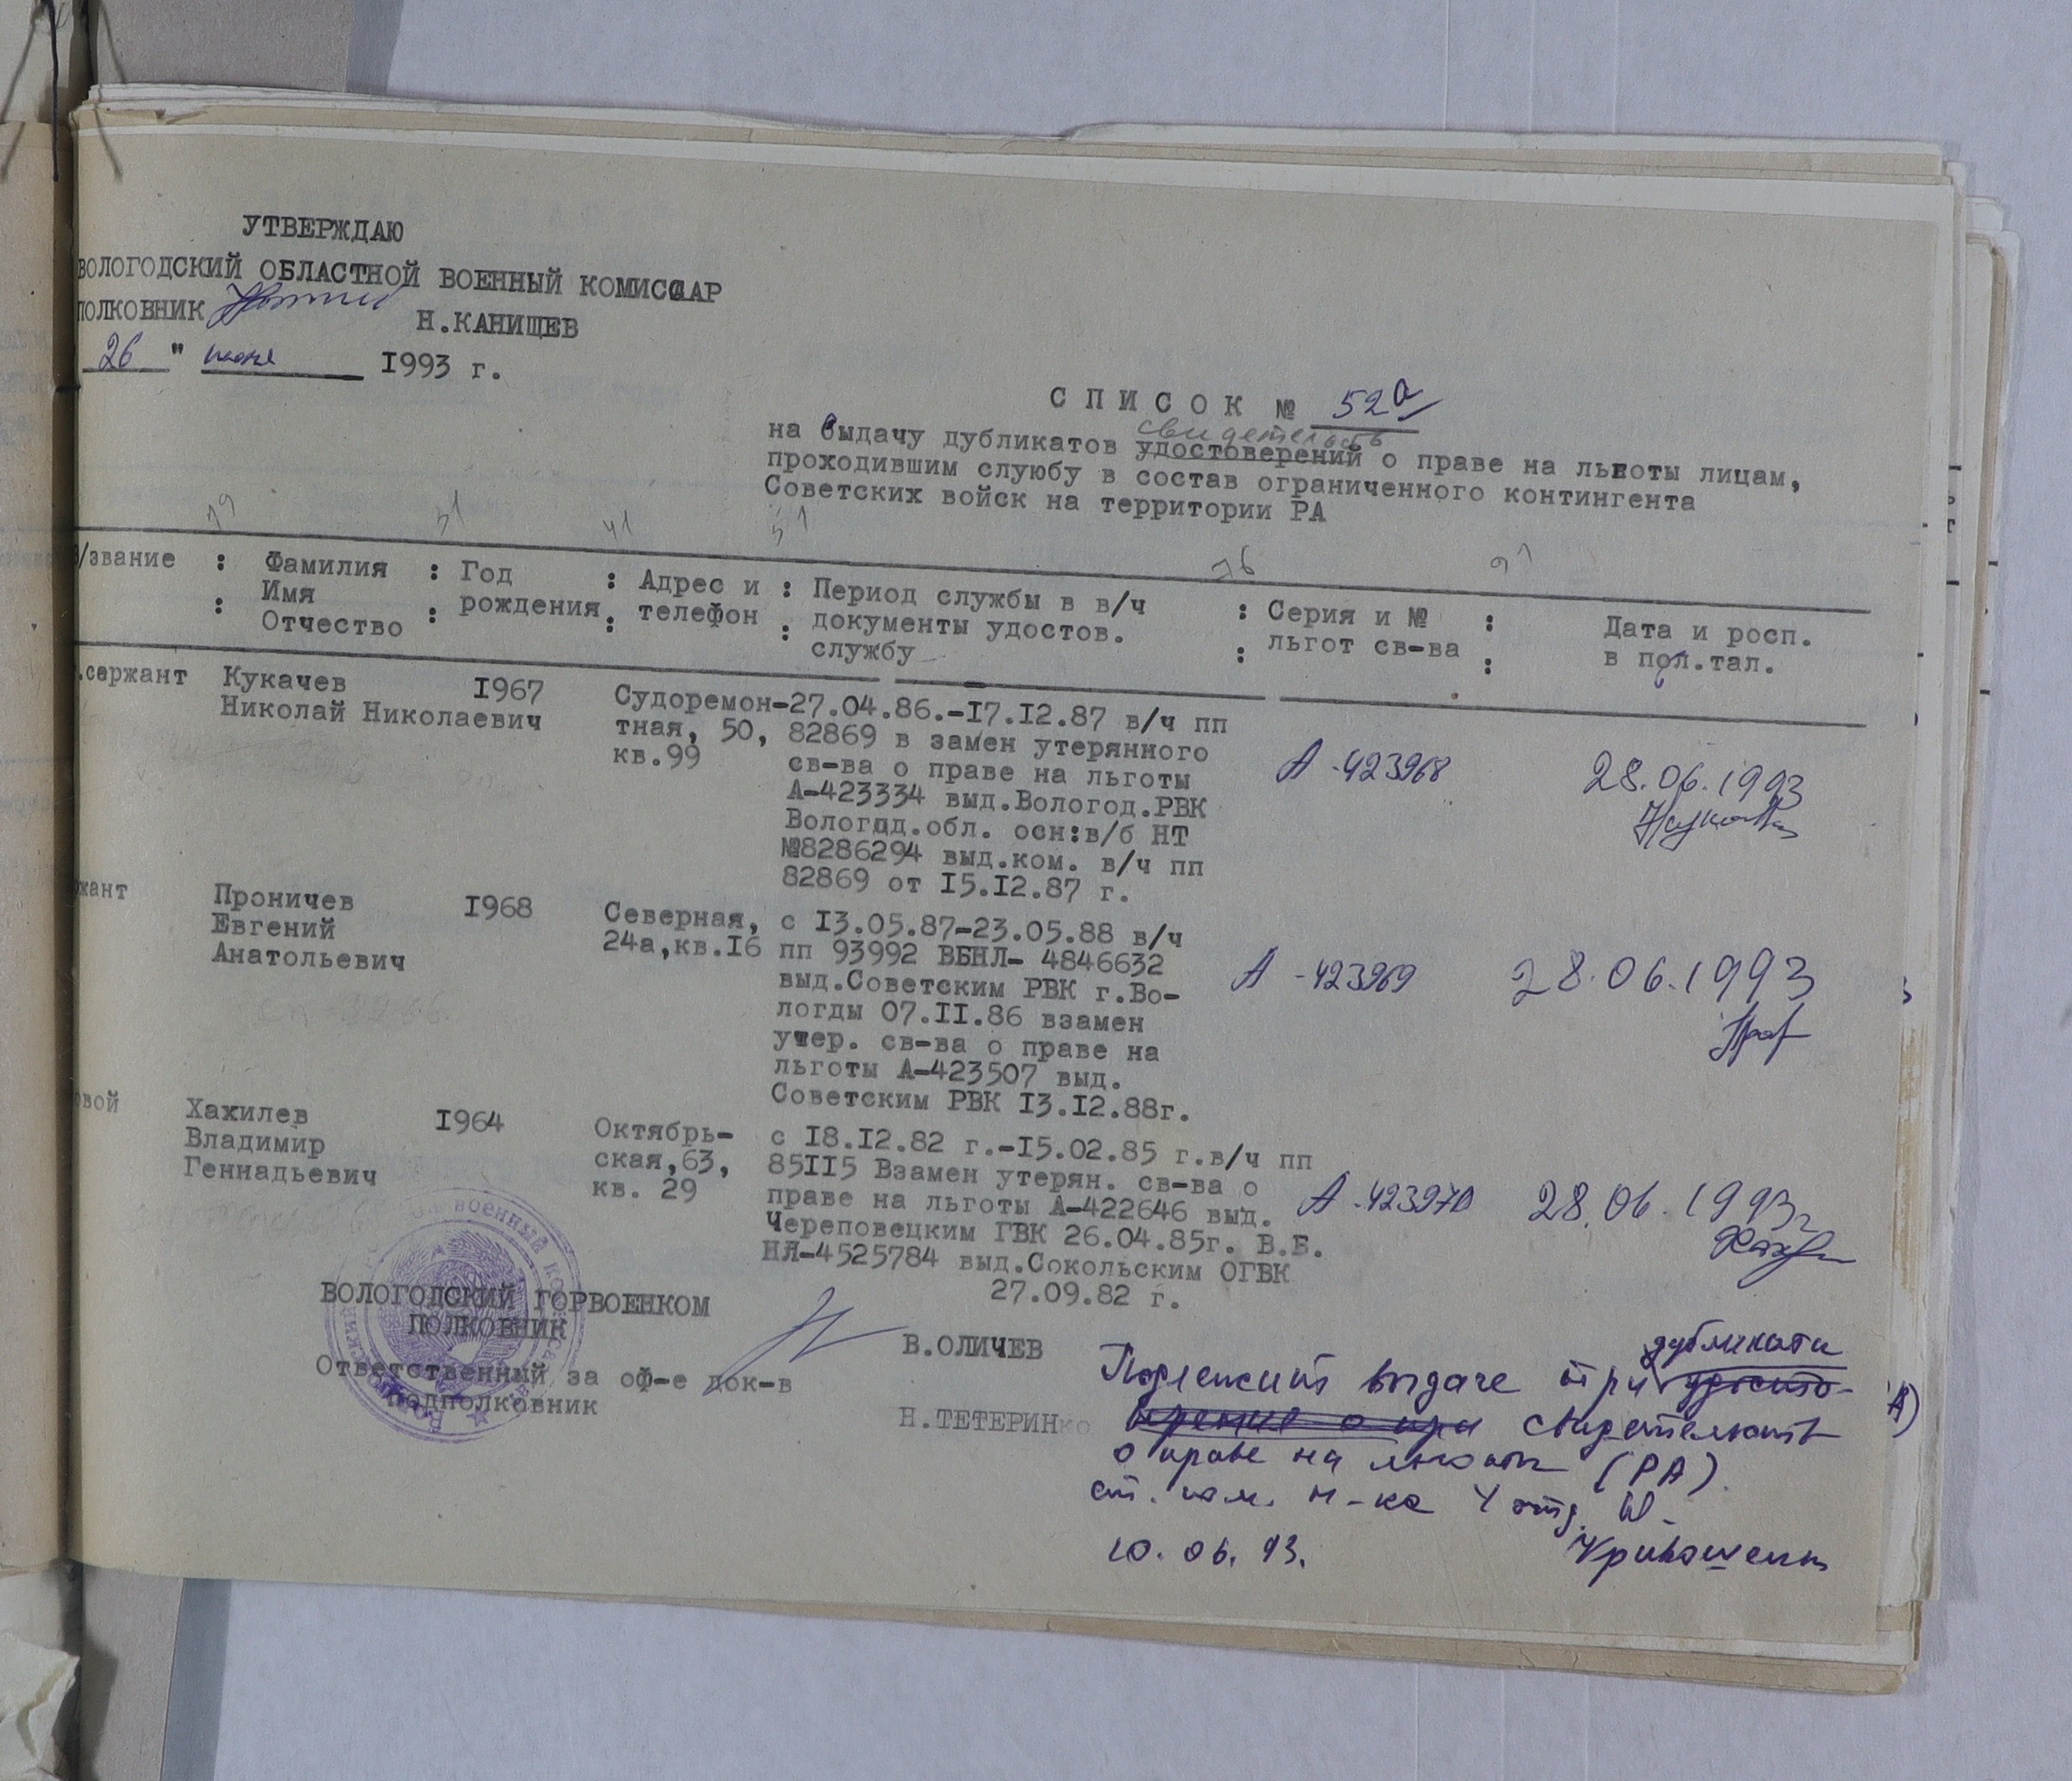 УТВЕРЖДАЮ
ВОЛОГОДСКИЙ ОБЛАСТНОЙ ВОЕННЫЙ КОМИССАР
ПОЛКОВНИК Н.КАНИЩЕВ
26 " июня 1993 г.
СПИСОК № 52а
свидетельств
на выдачу дубликатов удостоверений о праве на льготы лицам,
проходившим службу в состав ограниченного контингента
Советских войск на территории РА
/звание : Фамилия : Год : Адрес и : Период службы в в/ч : Серия и № : Дата и росп.
: Имя : рождения : телефон : документы удостов. : льгот св-ва : в пол.тал.
Отчество службу
.сержант Кукачев 1967 Судоремон-27.04.86.-17.12.87 в/ч пп
Николай Николаевич тная, 50, 82869 в замен утерянного
кв.99 св-ва о праве на льготы А-423968 28.06.1993
А-423334 выд.Вологод.РВК
Вологод.обл. осн:в/б НТ
№8286294 выд.ком. в/ч пп
82869 от 15.12.87 г.
жант Проничев 1968 Северная, с 13.05.87-23.05.88 в/ч
Евгений 24а,кв.16 пп 93992 ВБНЛ- 4846632
Анатольевич выд.Советским РВК г.Во- А-423969 28.06.1993
логды 07.11.86 взамен
утер. св-ва о праве на
льготы А-423507 выд.
Советским РВК 13.12.88г.
овой Хахилев 1964 Октябрь- с 18.12.82 г.-15.02.85 г.в/ч пп
Владимир ская,63, 85115 Взамен утерян. св-ва о
Геннадьевич кв. 29 праве на льготы А-422646 выд. А-423970 28.06.1993г
Череповецким ГВК 26.04.85г. В.Б.
НЛ-4525784 выд.Сокольским ОГВК
27.09.82 г.
ВОЛОГОДСКИЙ ГОРВОЕНКОМ
ПОЛКОВНИК В.ОЛИЧЕВ
Ответственный за оф-е док-в
подполковник Н.ТЕТЕРИНко
дубликата
Подлежит выдаче три
свидетельств
о праве на льготы (РА).
ст. пом. н-ка 4 отд.
10.06.93.